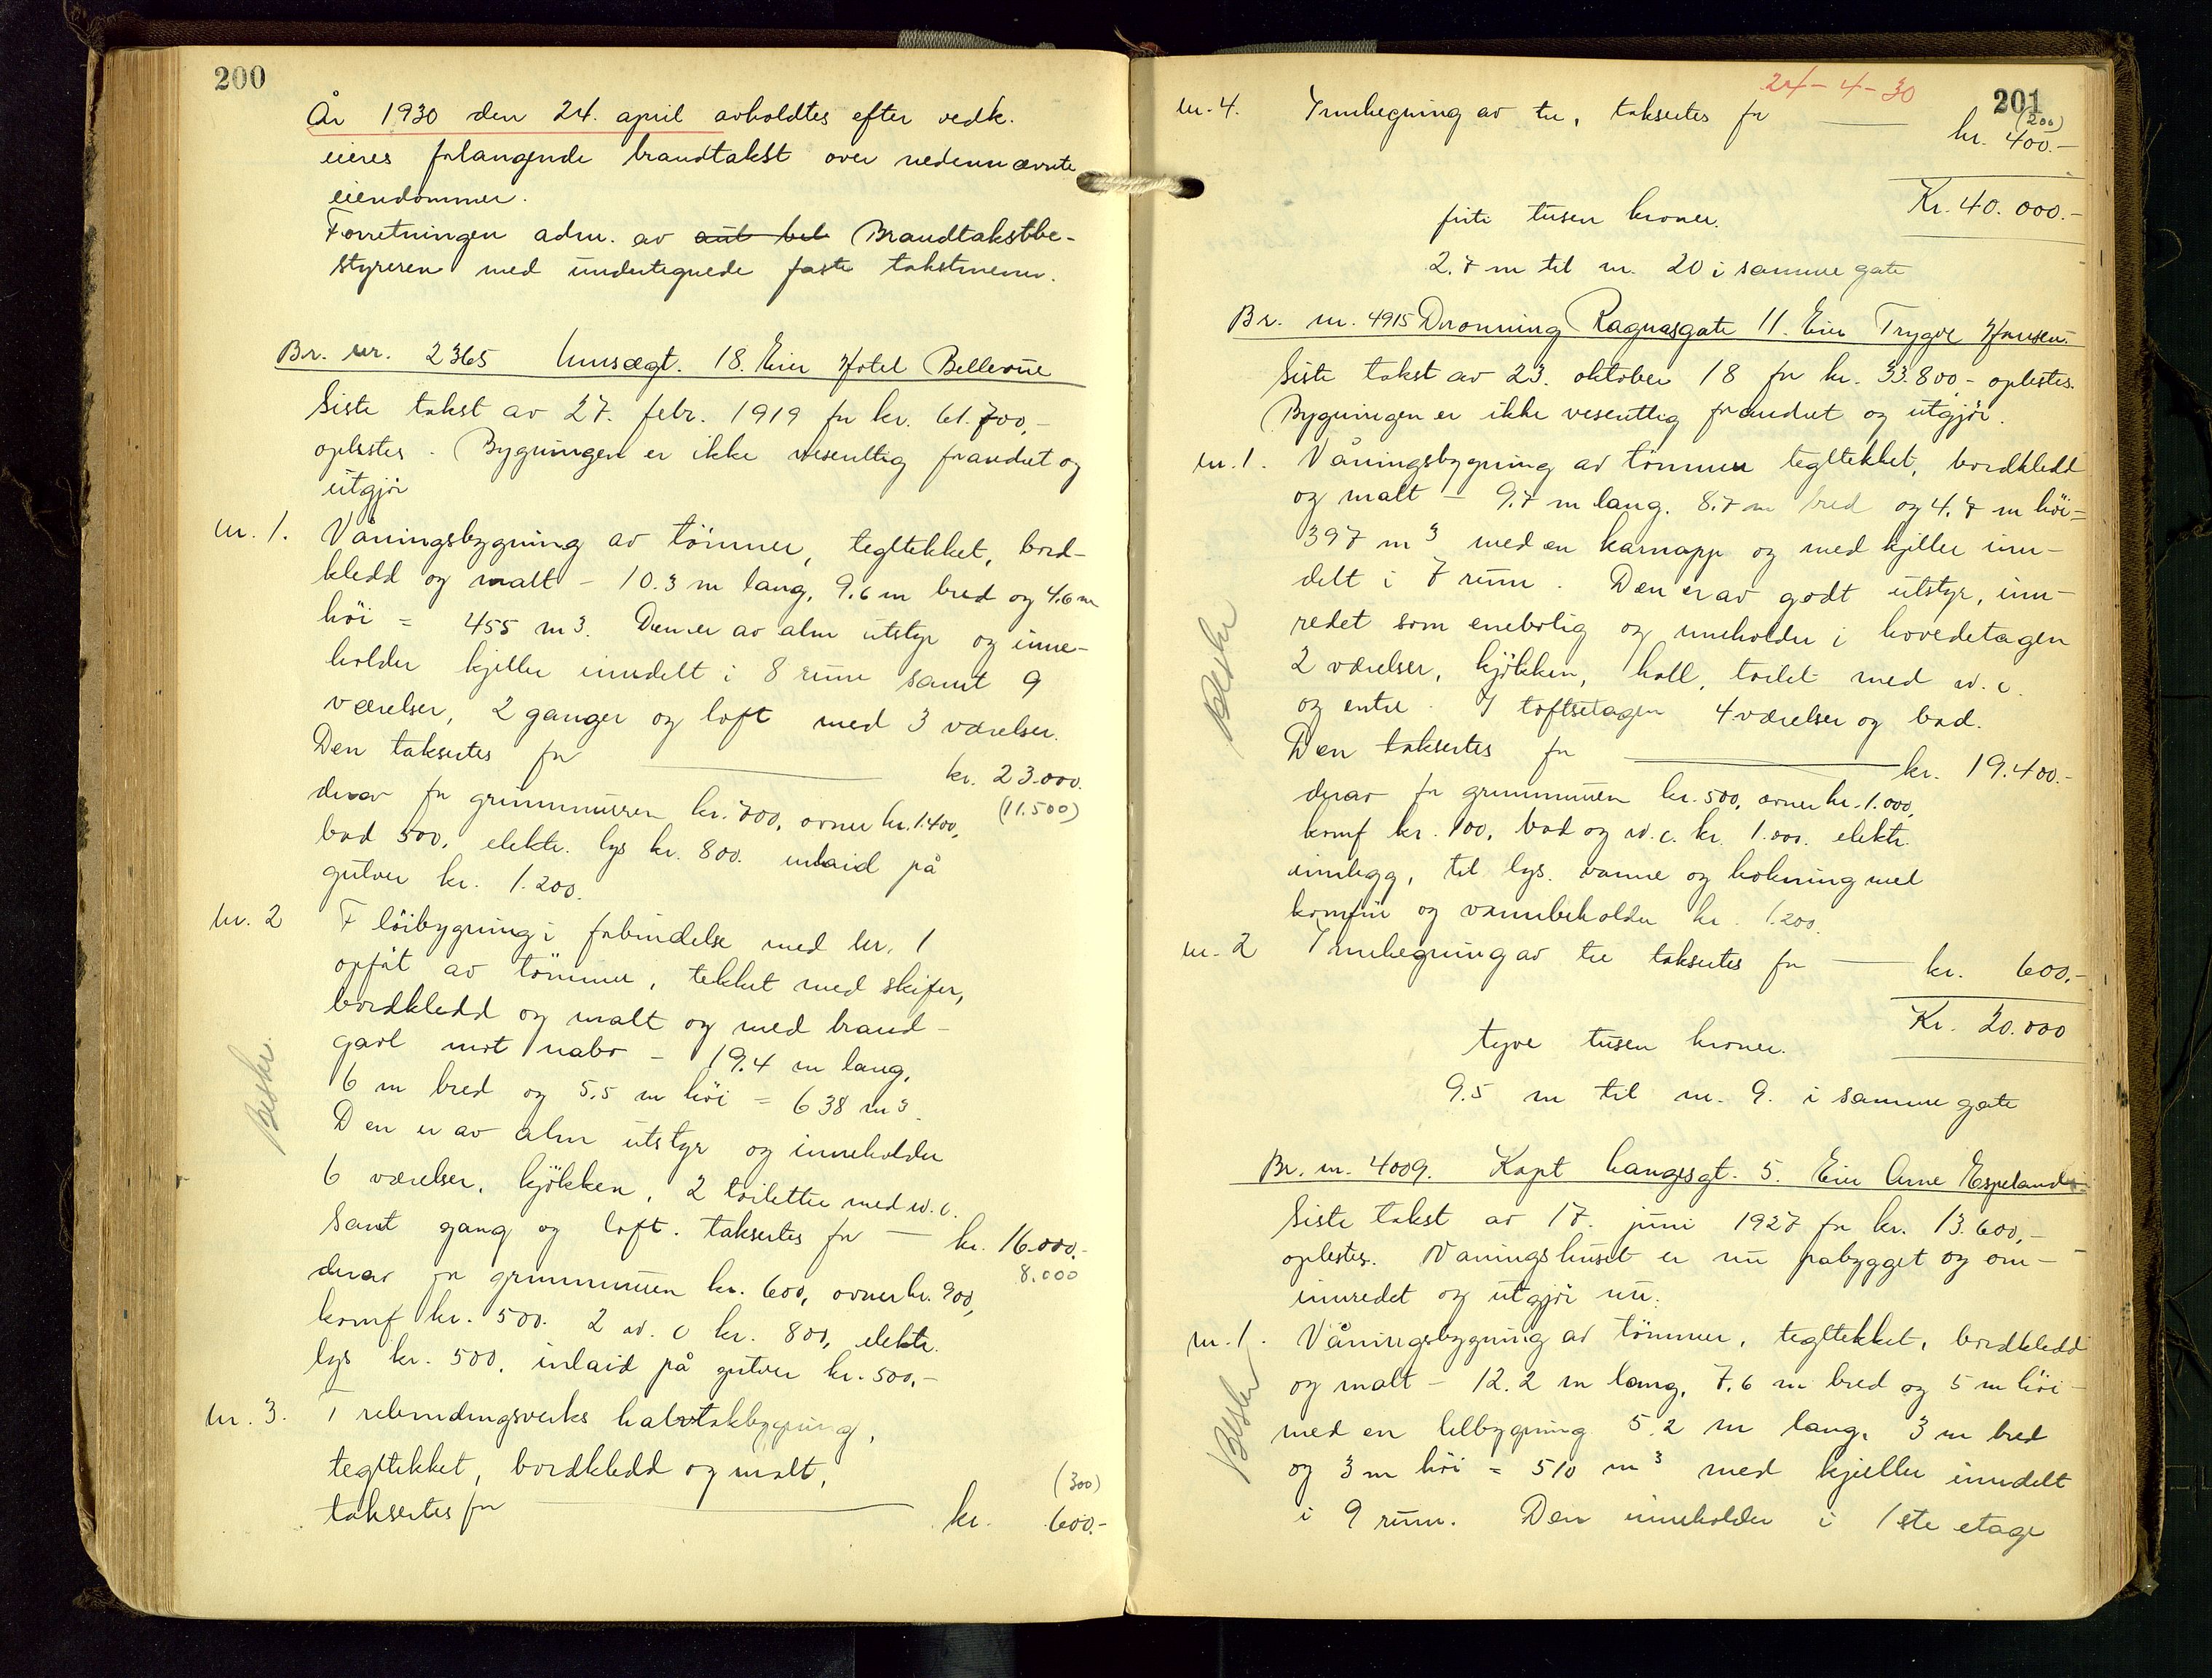 200
År 1930 den 24. april avholdtes efter vedk.
eieres forlangende brandtakst over nedennævnte
eiendommer.
Forretningen adm. av aut bel Brandtakstbe-
styreren med undertegnede faste takstmenn.
Br. nr. 2365 Eier Hotel Bellevue
Siste takst av 27. febr. 1919 for kr. 61.700,-
oplestes. Bygningen er ikke vesentlig forandret og
utgjör
nr. 1. Våningsbygning av tömmer, tegltekket, bord-
kledd og malt - 10.3 m lang, 9.6 m bred og 4.6 m
höi = 455 m3. Den er av alm utstyr og inne-
holder kjeller inndelt i 8 rum samt 9
værelser, 2 ganger og loft med 3 værelser.
Den taksertes for kr. 23.000.
(11.500)
derav for grunnmuren kr. 700, ovner kr. 1.400,
bad 500, elektr. lys kr. 800. inlaid på
gulver kr. 1.200.
nr. 2 Flöibygning i forbindelse med nr. 1
opfört av tömmer, tekket med skifer,
bordkledd og malt og med brand-
gavl mot nabo - 19.4 m lang,
6 m bred og 5.5 m höi = 638 m3.
Den er av alm utstyr og inneholder
6 værelser, kjökken, 2 toiletter med w.c.
samt gang og loft. taksertes for - kr. 16.000.-
8.000
derav for grunnmuren kr. 600, ovner kr. 900,
komf kr. 500. 2 w.c kr. 800, elektr.
lys kr. 500, inlaid på gulver kr. 500,-
nr. 3. Trebindingsverks halvtakbygning,
tegltekket, bordkledd og malt,
(300)
taksertes for kr. 600.-
Beskr.
24-4-30
201
nr. 4. Innhegning av tre, taksertes for kr. 400.-
(200)
Kr. 40.000.-
firti tusen kroner.
2.7 m til nr. 20 i samme gate
Br. nr. 4915 Dronning Ragnasgate 11. Eier Trygve Hansen.
Siste takst av 23. oktober 18 for kr. 33.800- oplestes.
Bygningen er ikke vesentlig forandret og utgjör.
nr. 1. Våningsbygning av tömmer tegltekket, bordkledd
og malt - 9.7 m lang. 8.7 m bred og 4.7 m höi=
397 m3 med en karnapp og med kjeller inn-
delt i 7 rum. Den er av godt utstyr, inn-
redet som enebolig og inneholder i hovedetagen
2 værelser, kjökken, hall, toilet med w.c.
og entre. I loftsetagen 4 værelser og bad.
Den taksertes for kr. 19.400.-
derav for grunnmuren kr. 500, ovner kr. 1.000,
komf kr. 100, bad og w.c. kr. 1.000. elektr.
innlegg, til lys. varme og kokning med
komfur og vannbeholder kr. 1.200.
nr. 2 Innhegning av tre taksertes for kr. 600,-
Kr. 20.000
tyve tusen kroner.
9.5 m til nr. 9. i samme gate
Beskr
Br. nr. 4009. Kapt Langesgt. 5. Eier Arne Espeland
Siste takst av 17. juni 1927 for kr. 13.600,-
oplestes. Våningshuset er nu påbygget og om-
innredet og utgjör nu.
nr. 1. Våningsbygning av tömmer, tegltekket, bordkledd
og malt - 12.2 m lang, 7.6 m bred og 5 m höi-
med en tilbygning 5.2 m lang, 3 m bred
og 3 m höi = 510 m3 med kjeller inndelt
i 9 rum. Den inneholder i 1ste etage
Beskr